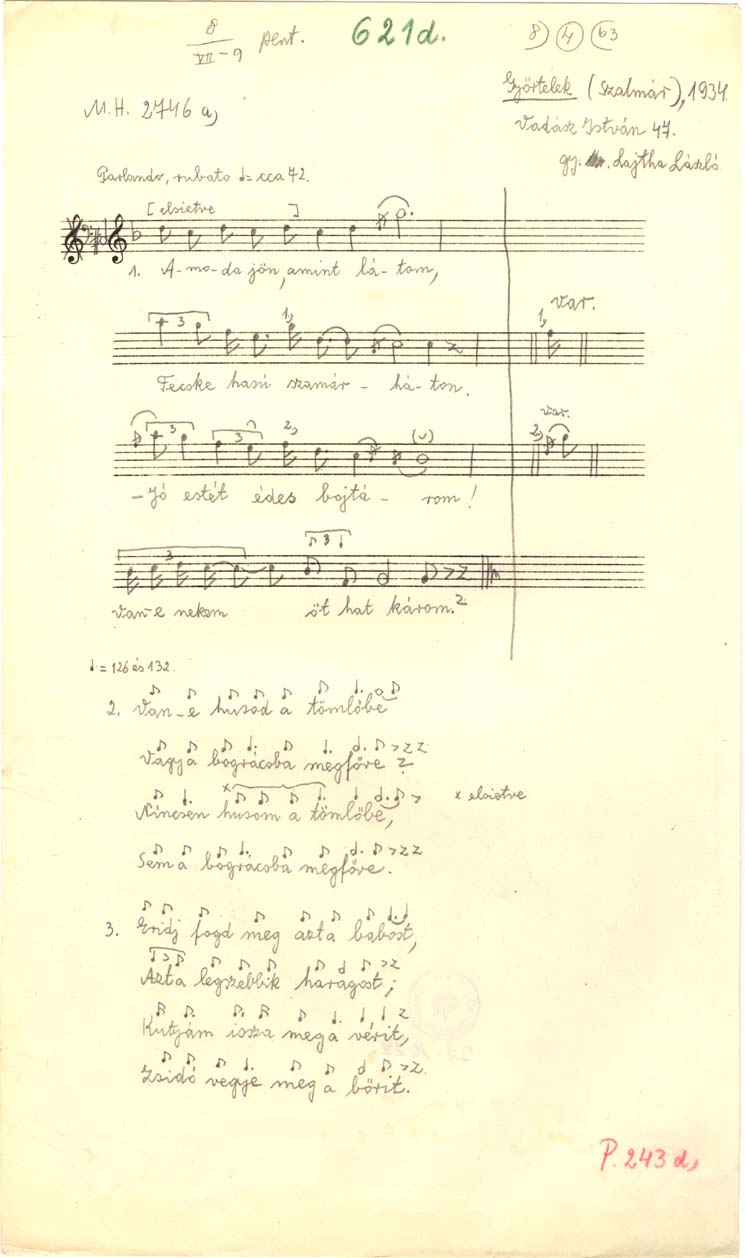 8
VII-9 pent. 621d. 8) 4 b3
M.H. 2746 a) Győrtelek (Szatmár), 1934.
Vadász István 47.
gy: Lajtha László
Parlando, rubato ♩= cca 72.
[elsietve]
1. A-mo-da jön, amint lá-tom,
3 1) 1) Var.
Fecske hasú szamár - há-ton.
3 3 2) (ᴗ) 2) var.
-Jó estét édes bojtá - rom!
3 3
Van-e nekem öt hat károm?
♩= 126 és 132.
2. Van-e husod a tömlőbe
Vagy a bográcsba megfőve?
x
Nincsen husom a tömlőbe, x elsietve
Sem a bográcsba megfőve.
3. Eridj fogd meg azta babost,
Azta legszebbik haragost;
Kutyám issza meg a vérit,
Zsidó vegye meg a bőrit.
P. 243 d)